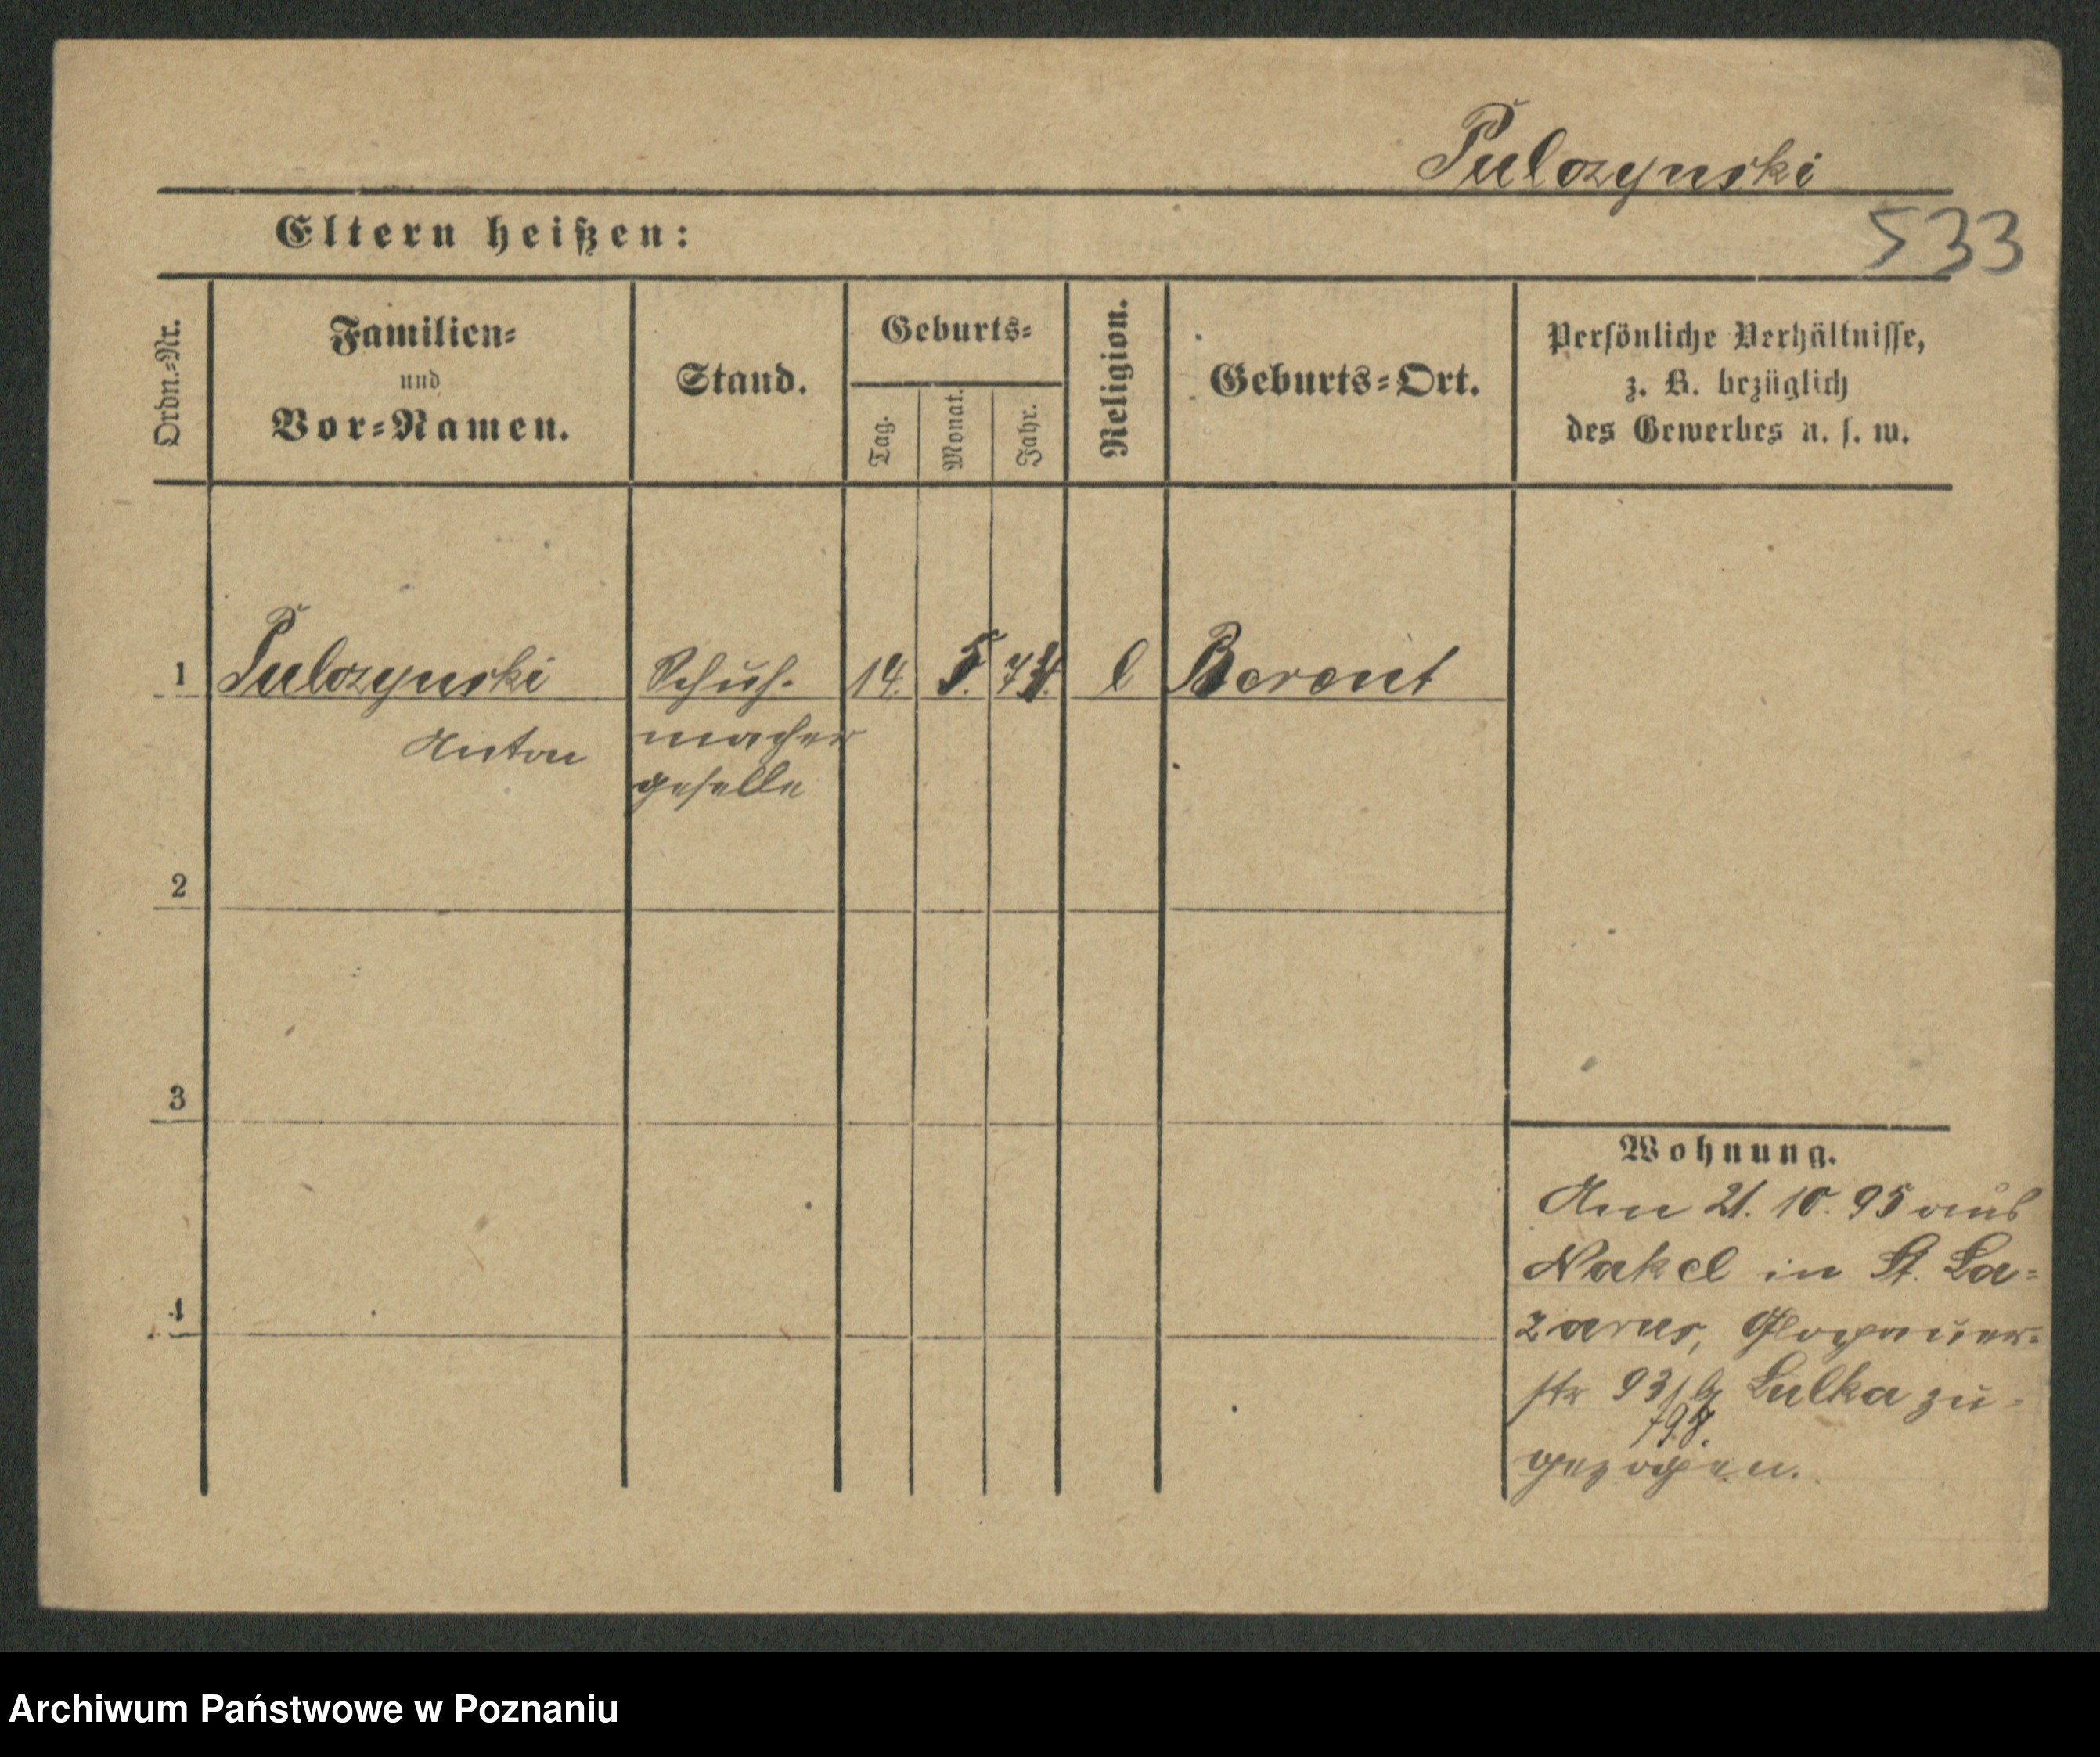 Pulczynski
533
Eltern heißen:
Ordn.-Nr.
Familien-
und
Vor-Namen.
Stand.
Geburts-
Tag.
Monat.
Jahr.
Religion.
Geburts-Ort.
Persönliche Verhältnisse,
z. B. bezüglich
des Gewerbes u. s. w.
1 Pulczynski Schuh- 14. 5. 74. Berent
Anton macher
geselle
2
3
4
Wohnung.
Am 21. 10. 95 aus
Nakel in St. La-
zarus, Glogauer-
str 93 Lulka zu-
gezogen.
Archiwum Państwowe w Poznaniu